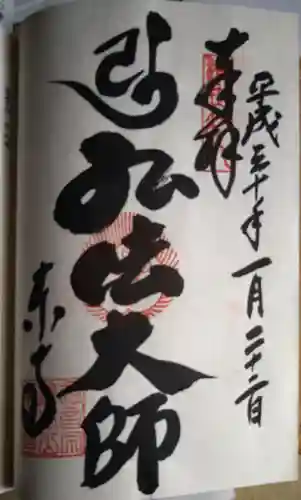 平成三十年一月二十二日
奉拝
弘法大師
東寺